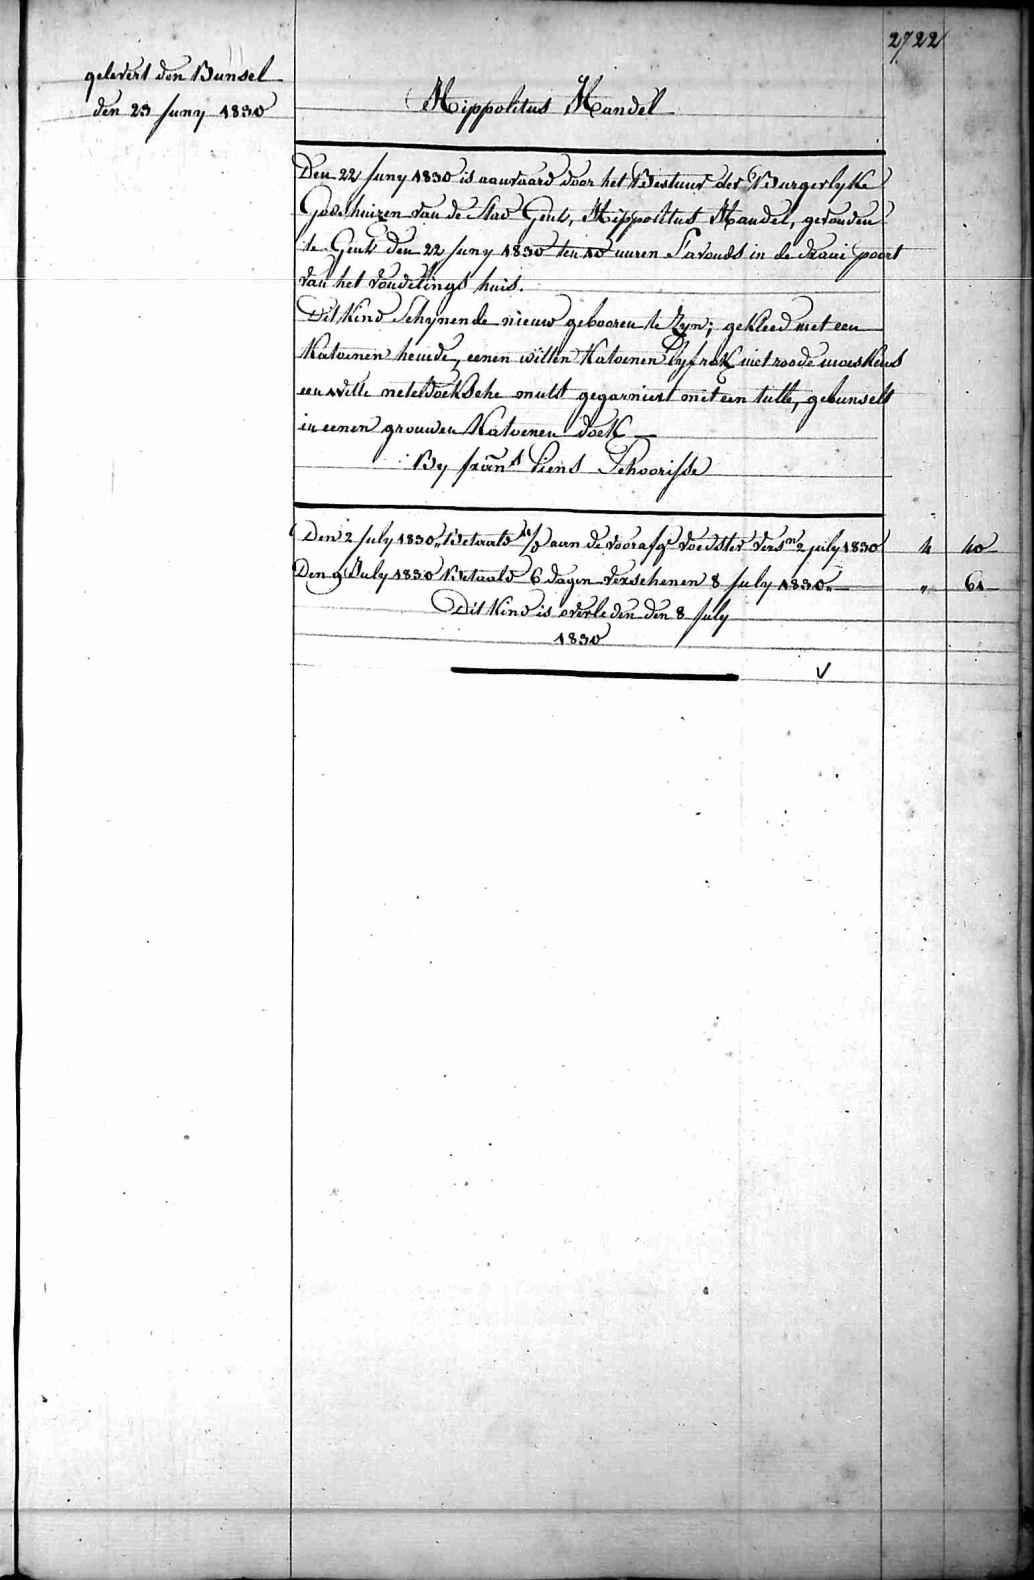 2722
gelevert den Bunsel
den 23 Juny 1830
Hippolitus Handel
Den 22 Juny 1830 is aanvaard door het Bestuur der Burgerlyke
Godshuizen van de Stad Gent, Hippolitus Handel, gevonden
te Gent den 22 Juny 1830 ten 10 uuren S'avonds in de draai poort
van het vondelings huis.
Dit Kind Schynende nieuw gebooren te Zyn; gekleed met een
Katoenen hemde, eenen witten Katoenen lyfrok met roode moeskens
een witte neteldoeksche muts gegarniert met een tulle, gebunselt
in eenen grouwen Katoenen doek
By frans Liens Schoorisse
Den 2 July 1830 „ Betaald aan de voorafge voedster Versn 2 july 1830 4 40
Den 9 July 1830 Betaald 6 dagen verschenen 8 July 1830 „ „ 61
Dit Kind is overleden den 8 July
1830